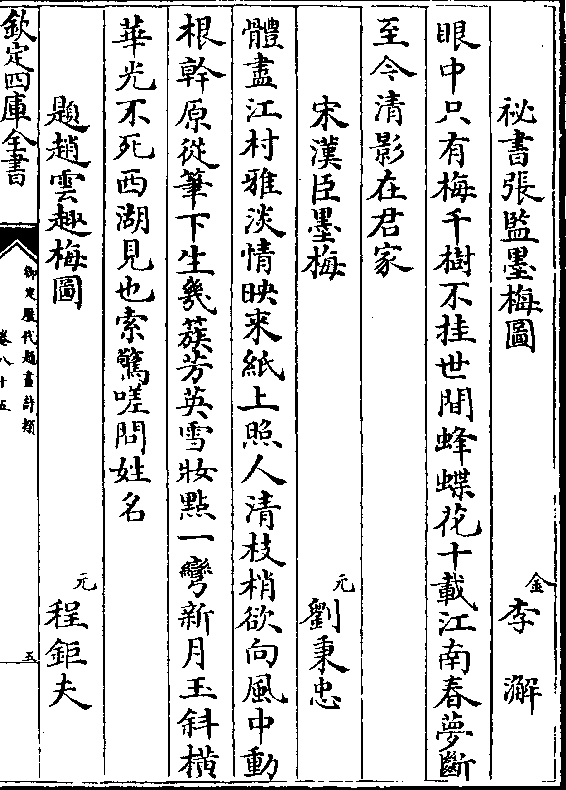 祕書張監墨梅圖　金李澥
眼中只有梅千樹不挂世間蜂蝶花十載江南春夢斷
至今清影在君家
宋漢臣墨梅　元劉秉忠
體盡江村雅淡情映来紙上照人清枝梢欲向風中動
根幹原從筆下生幾蔟芳英雪妝點一彎新月玉斜橫
華光不死西湖見也索驚嗟問姓名
題趙雲趣梅圖　元程鉅夫
欽定四庫全書
御定歷代題畫詩類
卷八十五
五